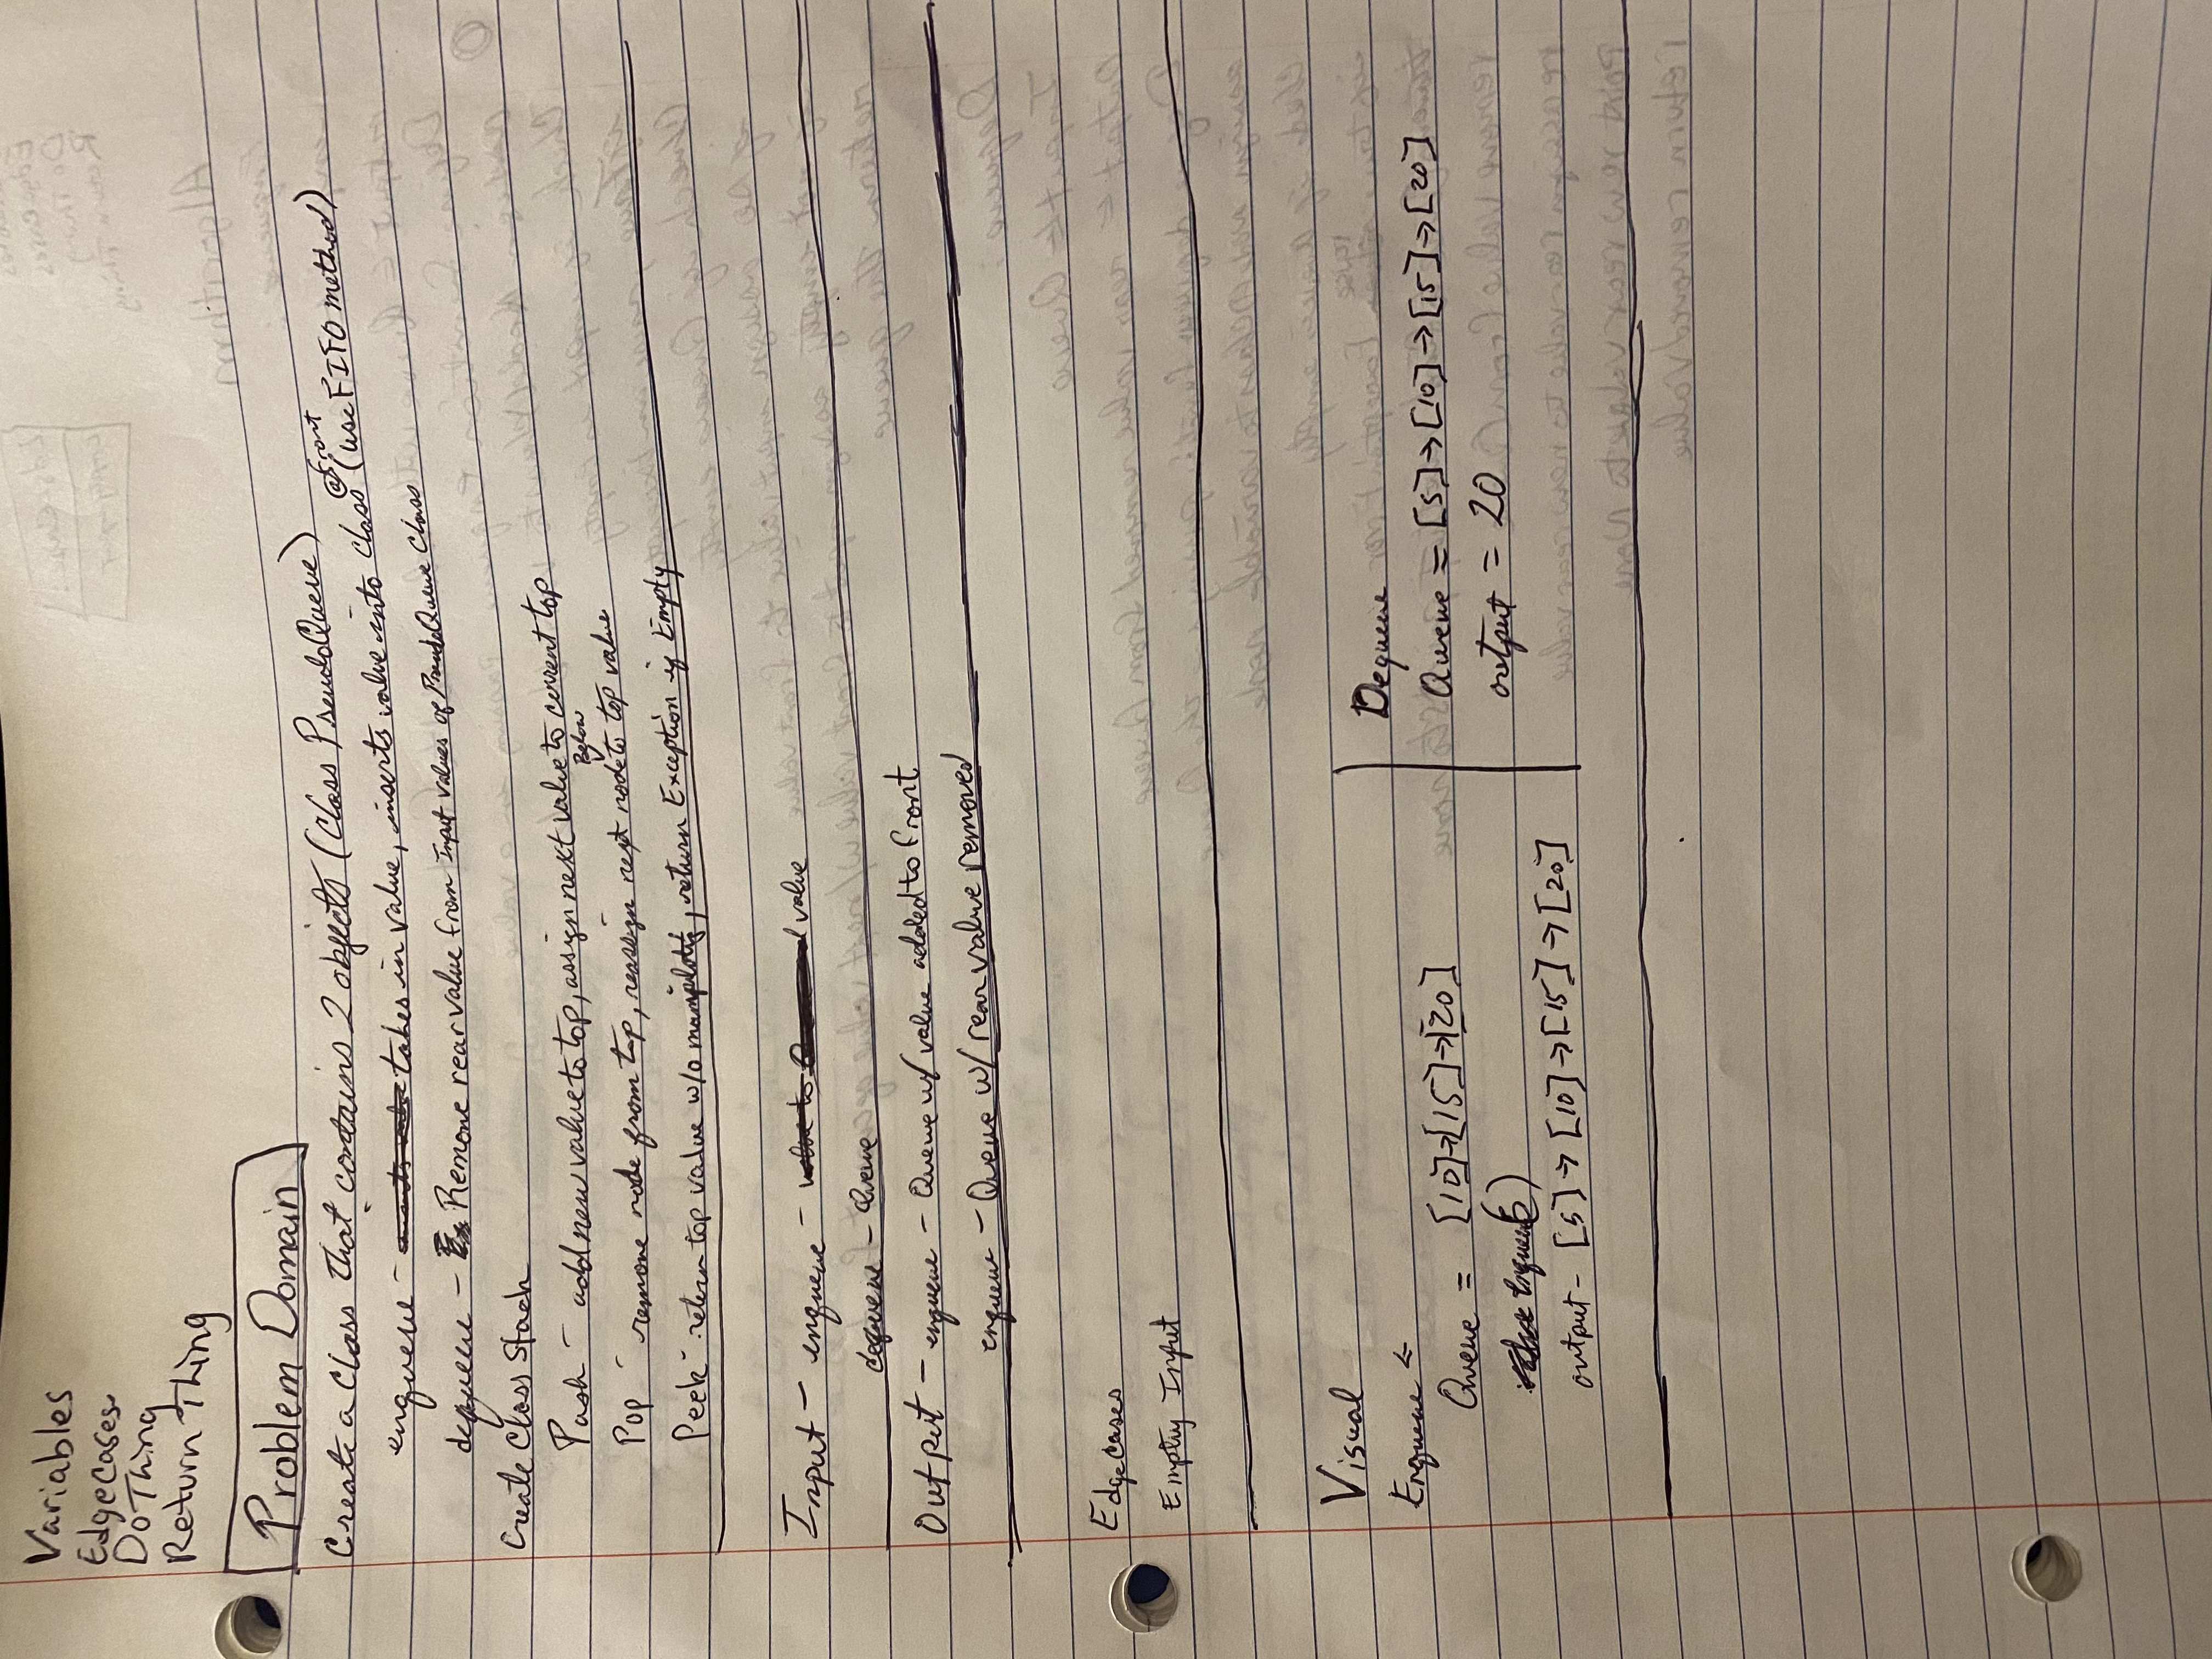 Variables
EdgeCases
Do Thing
Return Thing
Problem Domain
Create a Class that contains 2 objects (Class PseudoQueue)
enqueue - takes in value, inserts value into class @front (use FIFO method)
dequeue - Remove rear value from Input values of PseudoQueue Class
Create Class Stack
Push - add new value to top, assign next value to current top
Pop - remove node from top, reassign next node Below to top value
Peek - return top value w/o , return Exception if Empty
Input - enqueue - value
dequeue - Queue
Output - enqueue - Queue w/ value added to front
enqueue - Queue w/ rear value removed
EdgeCases
Empty Input
Visual
Enqueue ←
Queue = [10]→[15]→[20]
enqueue(5)
output - [5]→[10]→[15]→[20]
Dequeue
Queue = [5]→[10]→[15]→[20]
output = 20